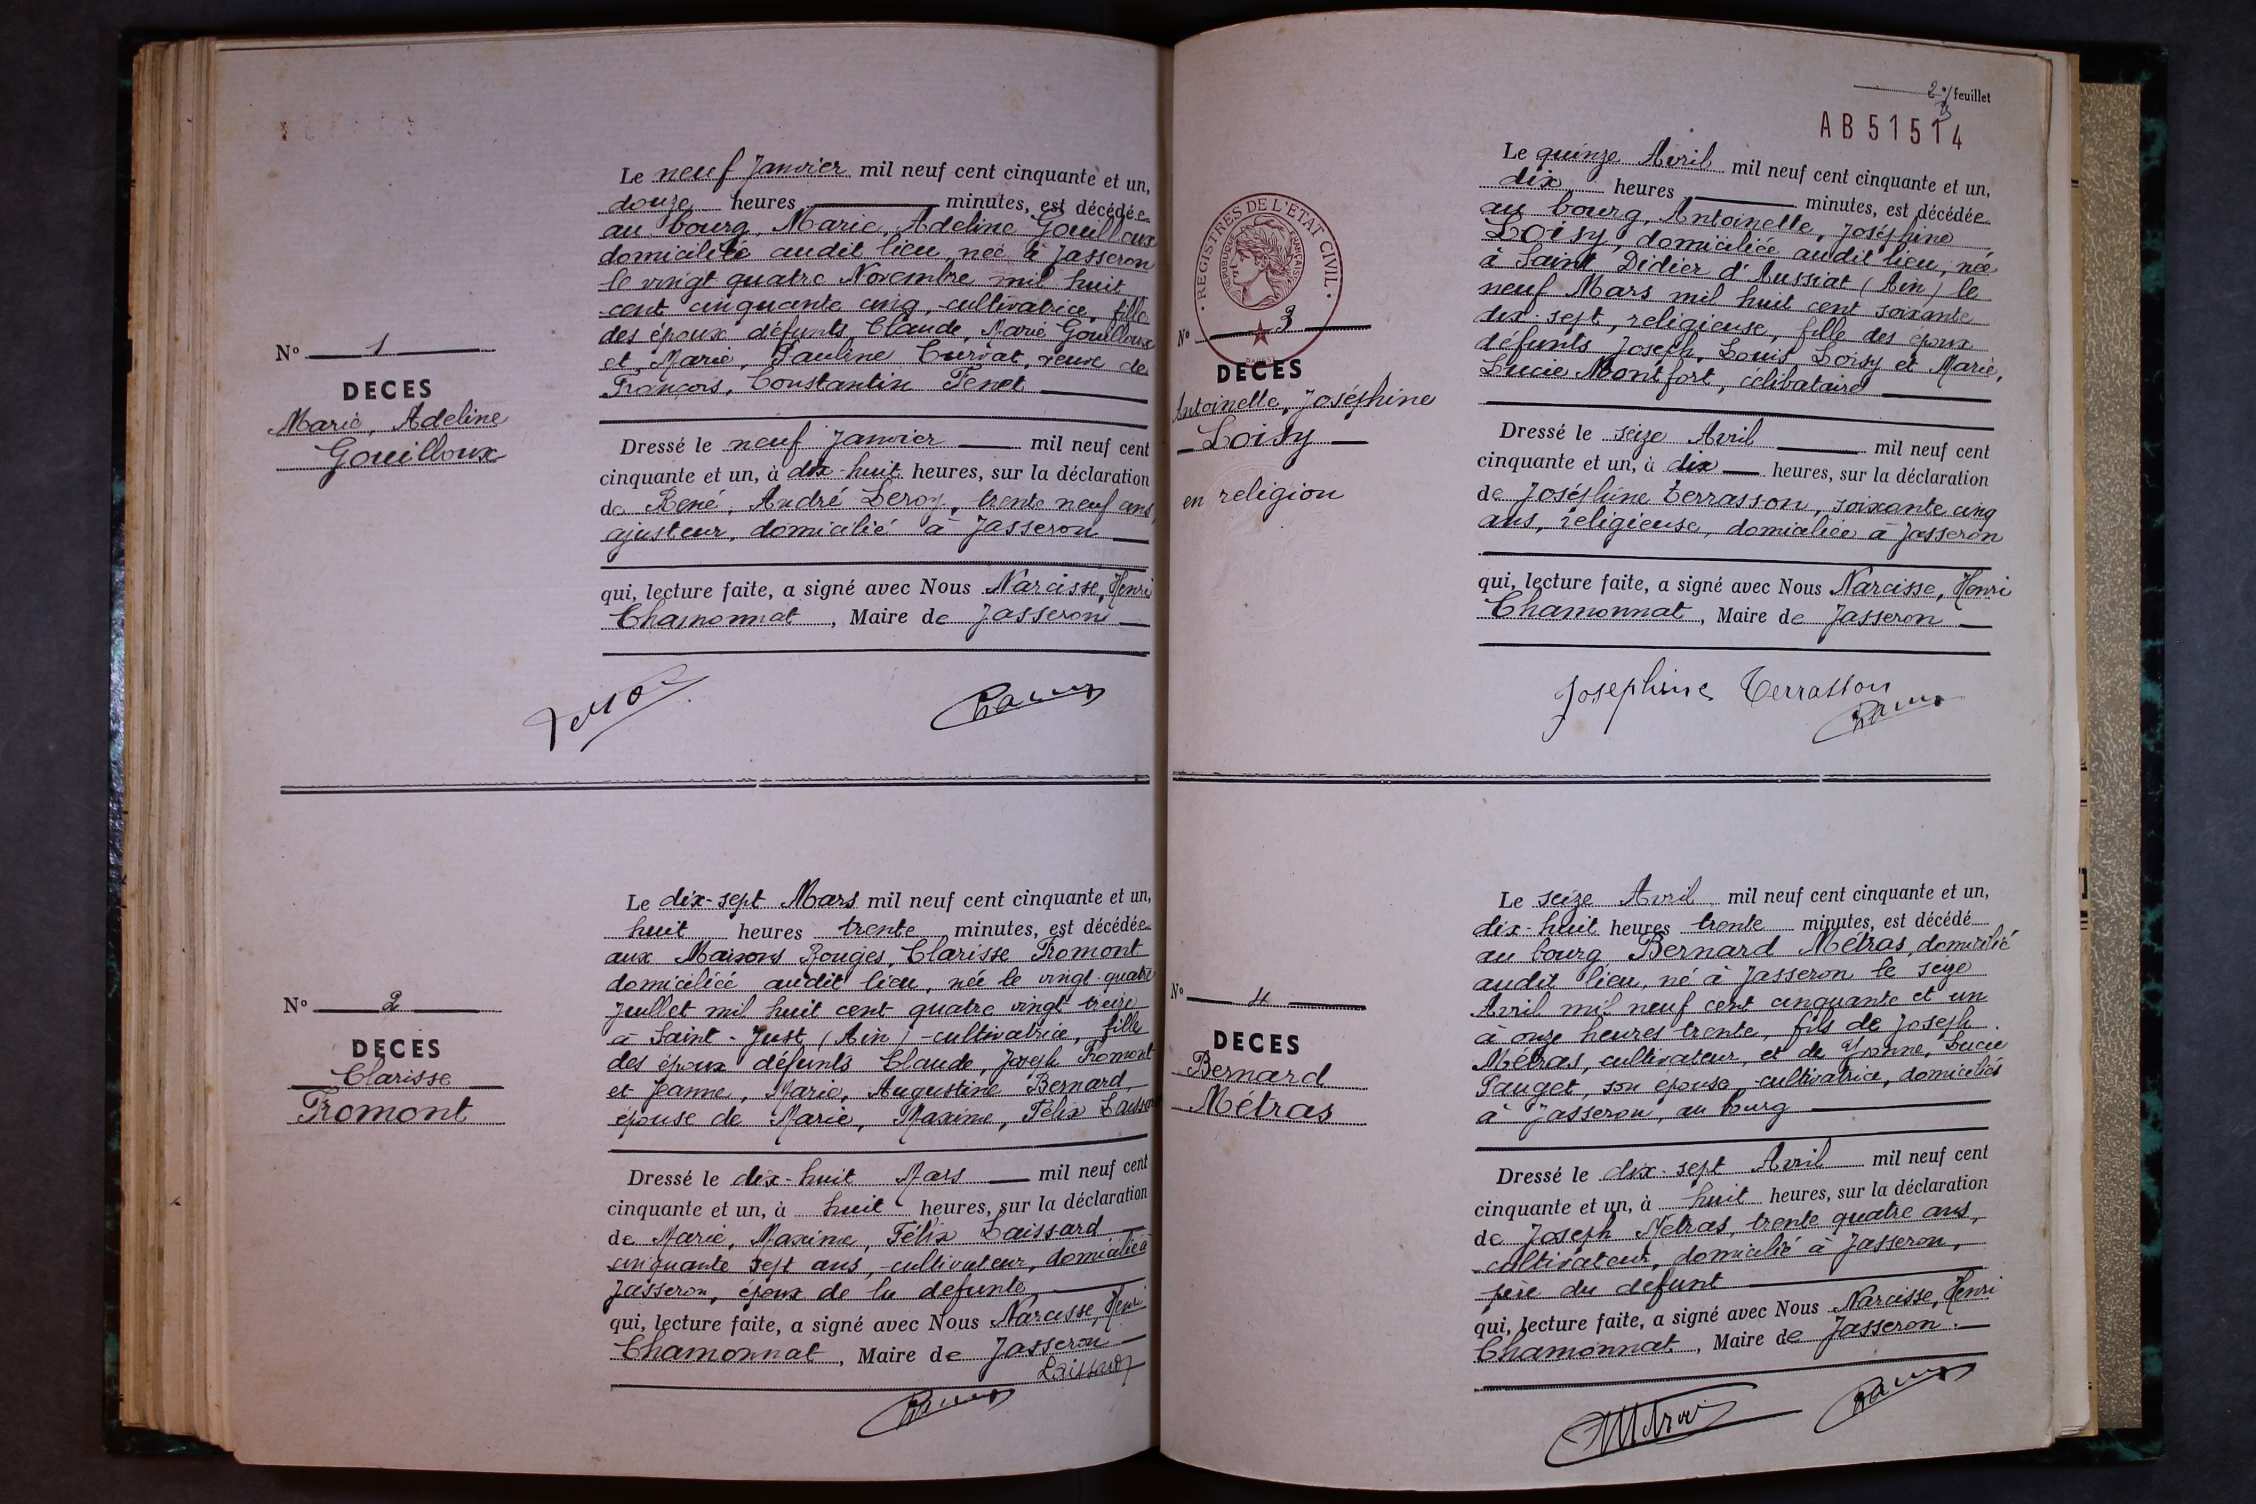 N° 1
DECES
Marie, Adeline
Gouilloux
Le neuf Janvier mil neuf cent cinquante et un,
douze heures minutes, est décédée
au bourg, Marie, Adeline Gouilloux
domiciliée audit lieu, née à Jasseron
le vingt quatre Novembre mil huit
cent cinquante cinq, cultivatrice, fille
des époux défunts Claude, Marie Gouilloux
et Marie, Pauline Curvat, veuve de
François, Constantin Fenet
Dressé le neuf Janvier mil neuf cent
cinquante et un, à dix-huit heures, sur la déclaration
de René, André Leroy, trente neuf ans,
ajusteur, domicilié à Jasseron
qui, lecture faite, a signé avec Nous Narcisse, Henri
Chamonnat, Maire de Jasseron
N° 2
DECES
Clarisse
Fromont
Le dix-sept Mars mil neuf cent cinquante et un,
huit heures trente minutes, est décédée
aux Maisons Rouges, Clarisse Fromont
domiciliée audit lieu, née le vingt-quatre
Juillet mil huit cent quatre vingt treize
à Saint-Just (Ain) cultivatrice, fille
des époux défunts Claude, Joseph Fromont
et Jeanne, Marie, Augustine Bernard,
épouse de Marie, Maxime, Félix Laissard
Dressé le dix-huit Mars mil neuf cent
cinquante et un, à huit heures, sur la déclaration
de Marie, Maxime, Félix Laissard
cinquante sept ans, cultivateur, domicilié à
Jasseron, époux de la défunte
qui, lecture faite, a signé avec Nous Narcisse, Henri
Chamonnat, Maire de Jasseron
Laissard
2e feuillet
AB51514
REGISTRES DE L'ETAT CIVIL
REPUBLIQUE FRANÇAISE
N° 3
DECES
Antoinette, Joséphine
Loisy
en religion
Le quinze Avril mil neuf cent cinquante et un,
dix heures minutes, est décédée
au bourg, Antoinette, Joséphine
Loisy, domiciliée audit lieu, née
à Saint Didier d'Aussiat (Ain) le
neuf Mars mil huit cent soixante
dix-sept, religieuse, fille des époux
défunts Joseph, Louis Loisy et Marie,
Lucie Montfort, célibataire
Dressé le seize Avril mil neuf cent
cinquante et un, à dix heures, sur la déclaration
de Joséphine Terrasson, soixante cinq
ans, religieuse, domiciliée à Jasseron
qui, lecture faite, a signé avec Nous Narcisse, Henri
Chamonnat, Maire de Jasseron
Josephine Terrasson
N° 4
DECES
Bernard
Métras
Le seize Avril mil neuf cent cinquante et un,
dix-huit heures trente minutes, est décédé
au bourg Bernard Métras, domicilié
audit lieu, né à Jasseron le seize
Avril mil neuf cent cinquante et un
à onze heures trente, fils de Joseph
Métras, cultivateur, et de Yvonne, Lucie
Pauget, son épouse, cultivatrice, domiciliés
à Jasseron, au bourg
Dressé le dix-sept Avril mil neuf cent
cinquante et un, à huit heures, sur la déclaration
de Joseph Métras, trente quatre ans,
cultivateur, domicilié à Jasseron,
père du défunt
qui, lecture faite, a signé avec Nous Narcisse, Henri
Chamonnat, Maire de Jasseron.